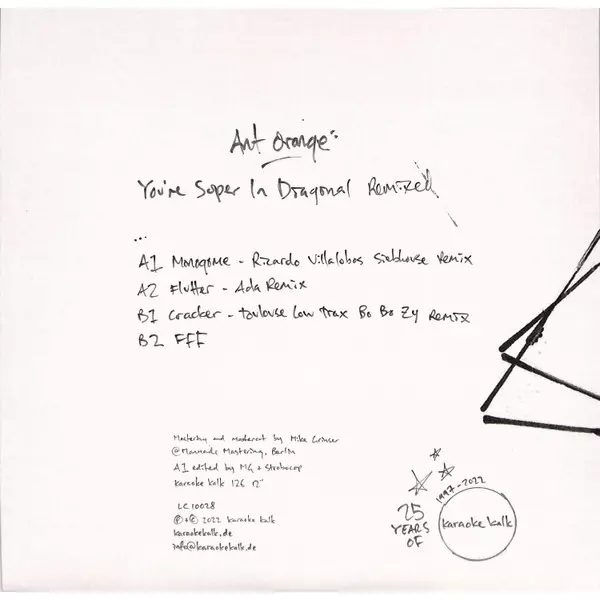 Ant Orange:
You're Super In Diagonal Remixed
...
A1 Monogome - Ricardo Villalobos Siebhouse Remix
A2 Flutter - Ada Remix
B1 Cracker - Toulouse Low Trax Bo Bo Zy Remix
B2 FFF
Mastering and mastercut by Mike Grinser
@Manmade Mastering, Berlin
A1 edited by MG + Strobocop
Karaoke Kalk 126 12"
LC 10028
Ⓟ+© 2022 Karaoke Kalk
karaokekalk.de
info@karaokekalk.de
1997-2022
25
YEARS
OF
karaoke kalk